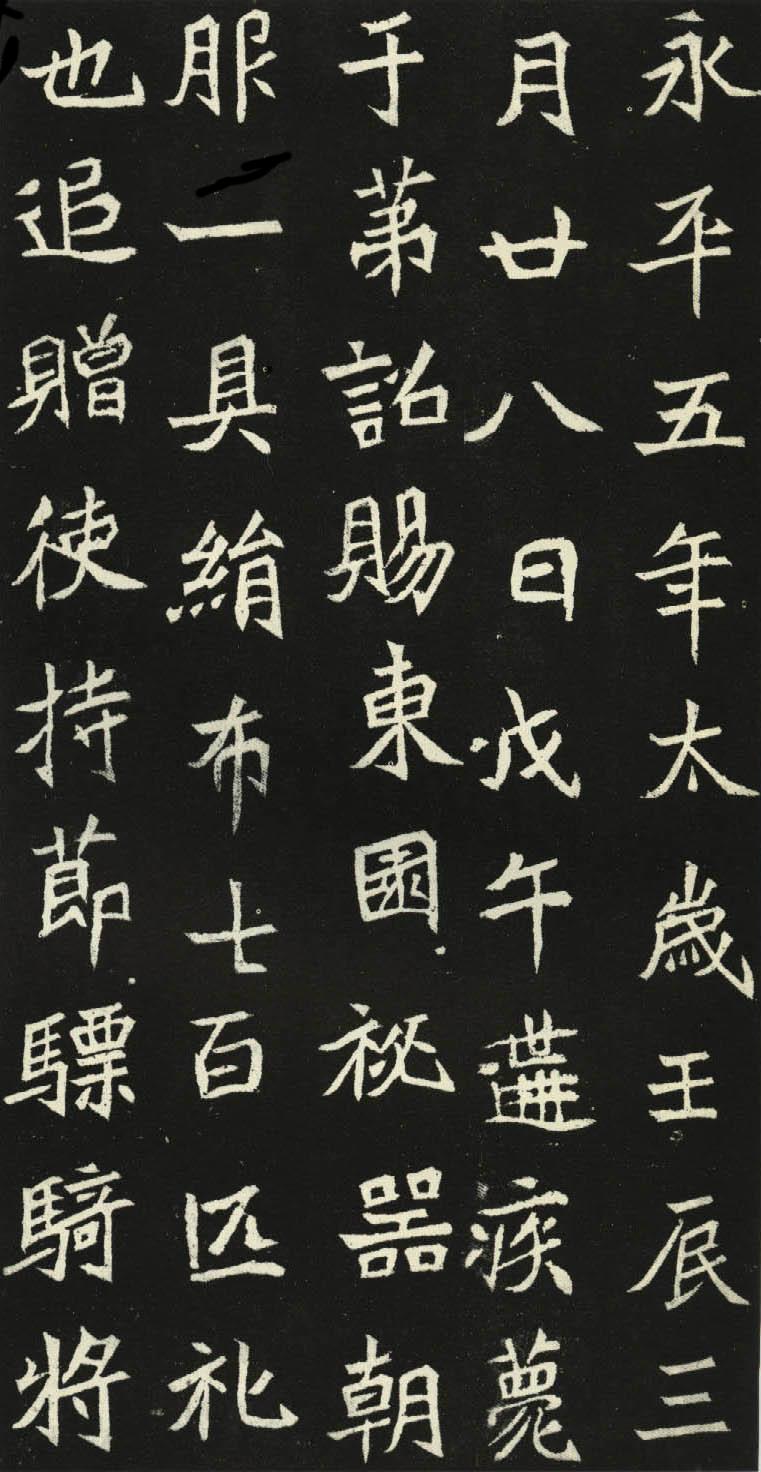 永平五年太歲壬辰三
月廿八日戊午遘疾薨
于苐詔賜東園秘器朝
服一具絹布七百匹礼
也追贈使持節驃騎將